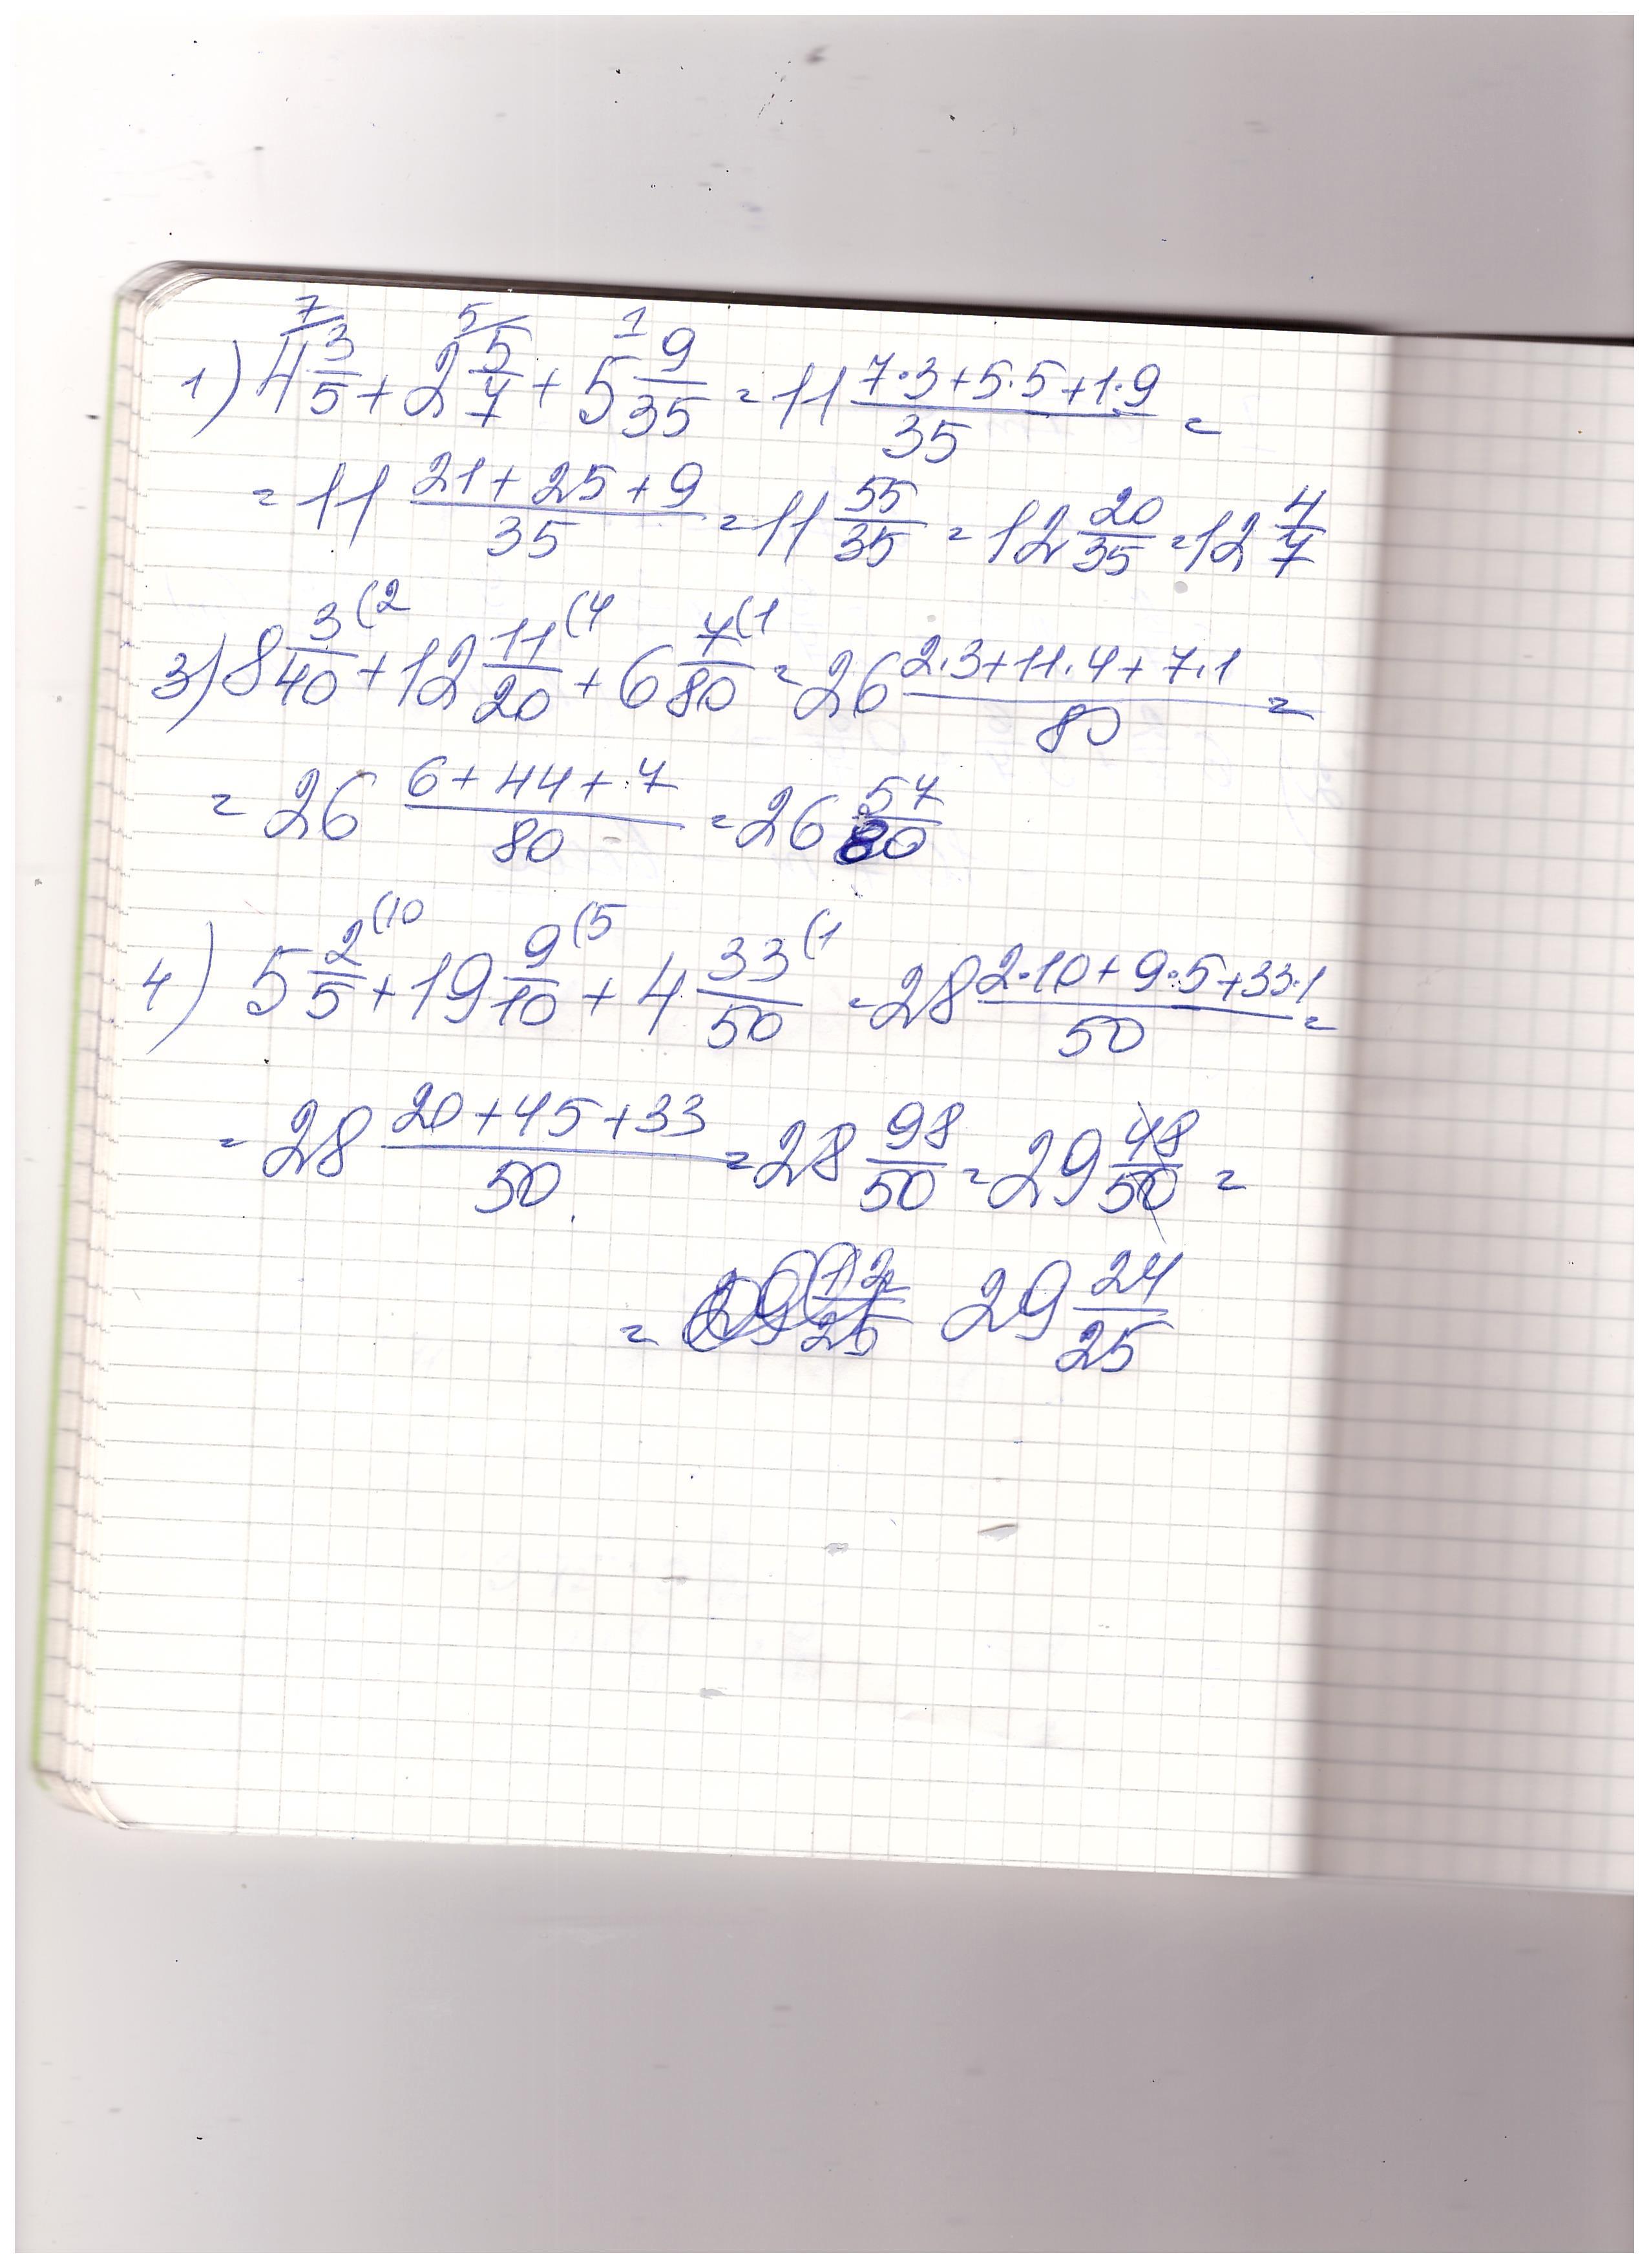 1) 4 3/5 + 2 5/7 + 5 9/35 = 11 (7·3+5·5+1·9)/35 =
= 11 (21+25+9)/35 = 11 55/35 = 12 20/35 = 12 4/7
3) 8 3/40 (2 + 12 11/20 (4 + 6 7/80 (1 = 26 (2·3+11·4+7·1)/80 =
= 26 (6+44+7)/80 = 26 57/80
4) 5 2/5 (10 + 19 9/10 (5 + 4 33/50 (1 = 28 (2·10+9·5+33·1)/50 =
= 28 (20+45+33)/50 = 28 98/50 = 29 48/50 =
= 29 24/25